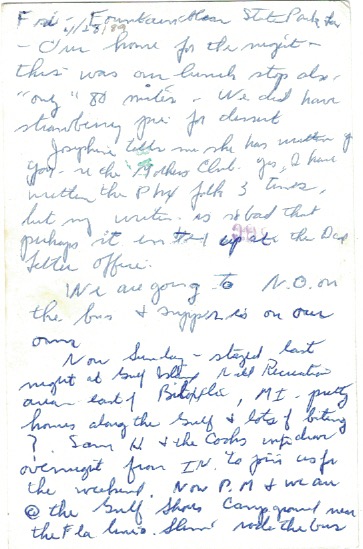 Fri - Fountainbleau State Park
4/28/89
- Our home for the night -
this was our lunch stop also -
"only" 80 miles - We did have
strawberry pie for dessert
Josephine tells me she has written
you - re the Mothers Club. yes, I have
written the folk 3 times,
but my writin. is so bad that
perhaps it in up at the Dead
Letter office.
We are going to N.O. on
the bus & supper is on our
own.
Now Sunday - stayed last
night at Gulf Recreation
area east of MI. pretty
homes along the Gulf & lots of biting
?. Sam H & the Cooks
overnight from IN. to join us for
the weekend. Now P.M & we are
@ the Gulf Shores Campground near
the Fla line. rode the bus